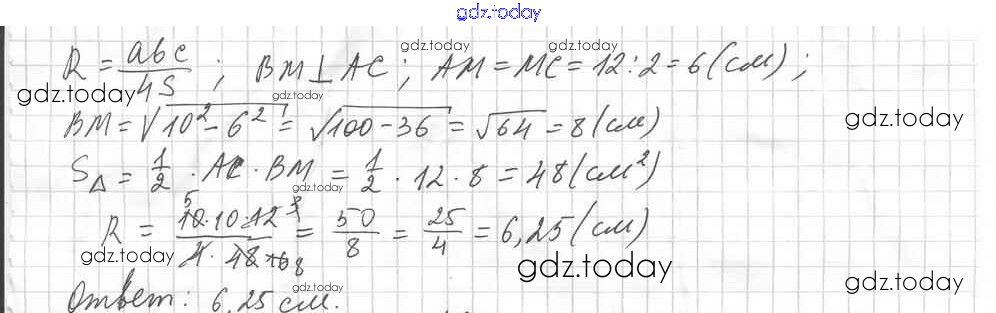 gdz.today
R = abc/4S ; BM ⊥ AC ; AM = MC = 12 : 2 = 6 (см) ;
gdz.today gdz.today gdz.today gdz.today
BM = √10² − 6² = √100 − 36 = √64 = 8 (см)
gdz.today
S△ = 1/2 · AC · BM = 1/2 · 12 · 8 = 48 (см²)
gdz.today
R = 10 · 10 · 12 / 4 · 48 = 50/8 = 25/4 = 6,25 (см)
gdz.today gdz.today gdz.today gdz.today
Ответ: 6,25 см.
gdz.today